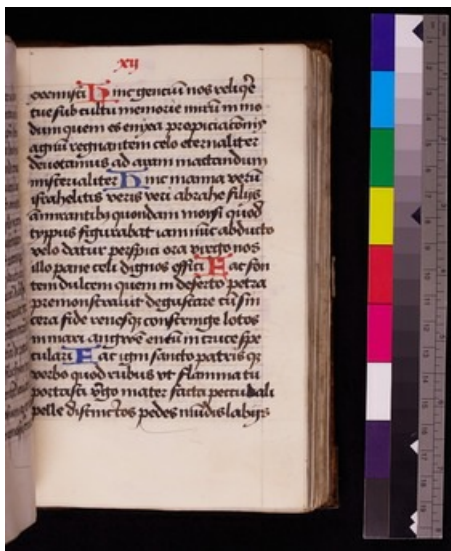 xij
promisisti Hinc gentiū nos reliqe
tue sub cultu memorie mirū in mo
dum quem es enixa propiciacōnis
agnū regnantem celo eternaliter
deuocamus ad aram mactandum
misterialiter Hinc manna verū
israhelitis veris veri abrahe filijs
amirantibz quondam moisi quod
typpus figurabat iam nūc abducto
velo datur perspici ora virgo nos
illo pane celi dignos effici Fac fon
tem dulcem quem in deserto petra
premonstrauit degustare cū sin
cera fide renesqz constringe lotos
in mari angwē eneū in cruce spe
culari Fac igni sancto patris qz
verbo quod rubus vt flamma tu
portasti vgo mater facta peccudali
pelle distinctos pedes mūdis labijs